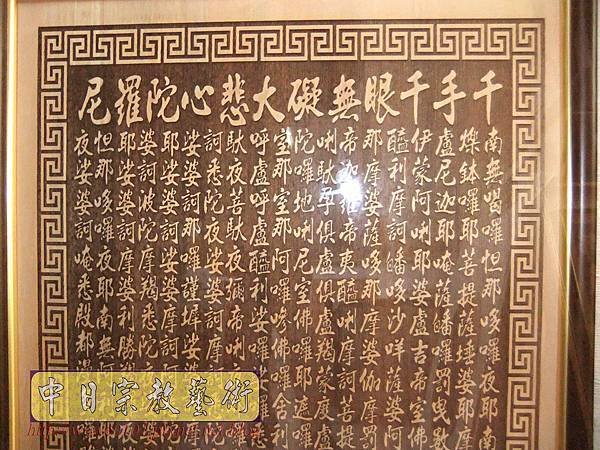 千手千眼無礙大悲心陀羅尼
南無喝囉怛那哆囉夜耶南
爍缽囉耶菩提薩埵婆耶摩
盧尼迦耶唵薩皤囉罰曳數
伊蒙阿唎耶婆盧吉帝室佛
醯利摩訶皤哆沙咩薩婆阿
那摩婆薩哆那摩婆伽摩罰
帝迦羅帝夷醯唎摩訶菩提
唎馱孕俱盧俱盧羯蒙度盧
陀囉地唎尼室佛囉耶遮囉
室那室那阿囉嘇佛囉舍利
呼盧呼盧醯利娑囉
馱夜菩馱夜彌帝唎
訶悉陀夜娑婆訶
娑婆訶那囉謹墀娑
耶娑婆訶娑婆摩訶
婆訶波陀摩羯悉陀
耶娑婆訶摩婆利勝羯
怛那哆囉夜耶南無阿
夜娑婆訶唵悉殿都漫
中日宗教藝術